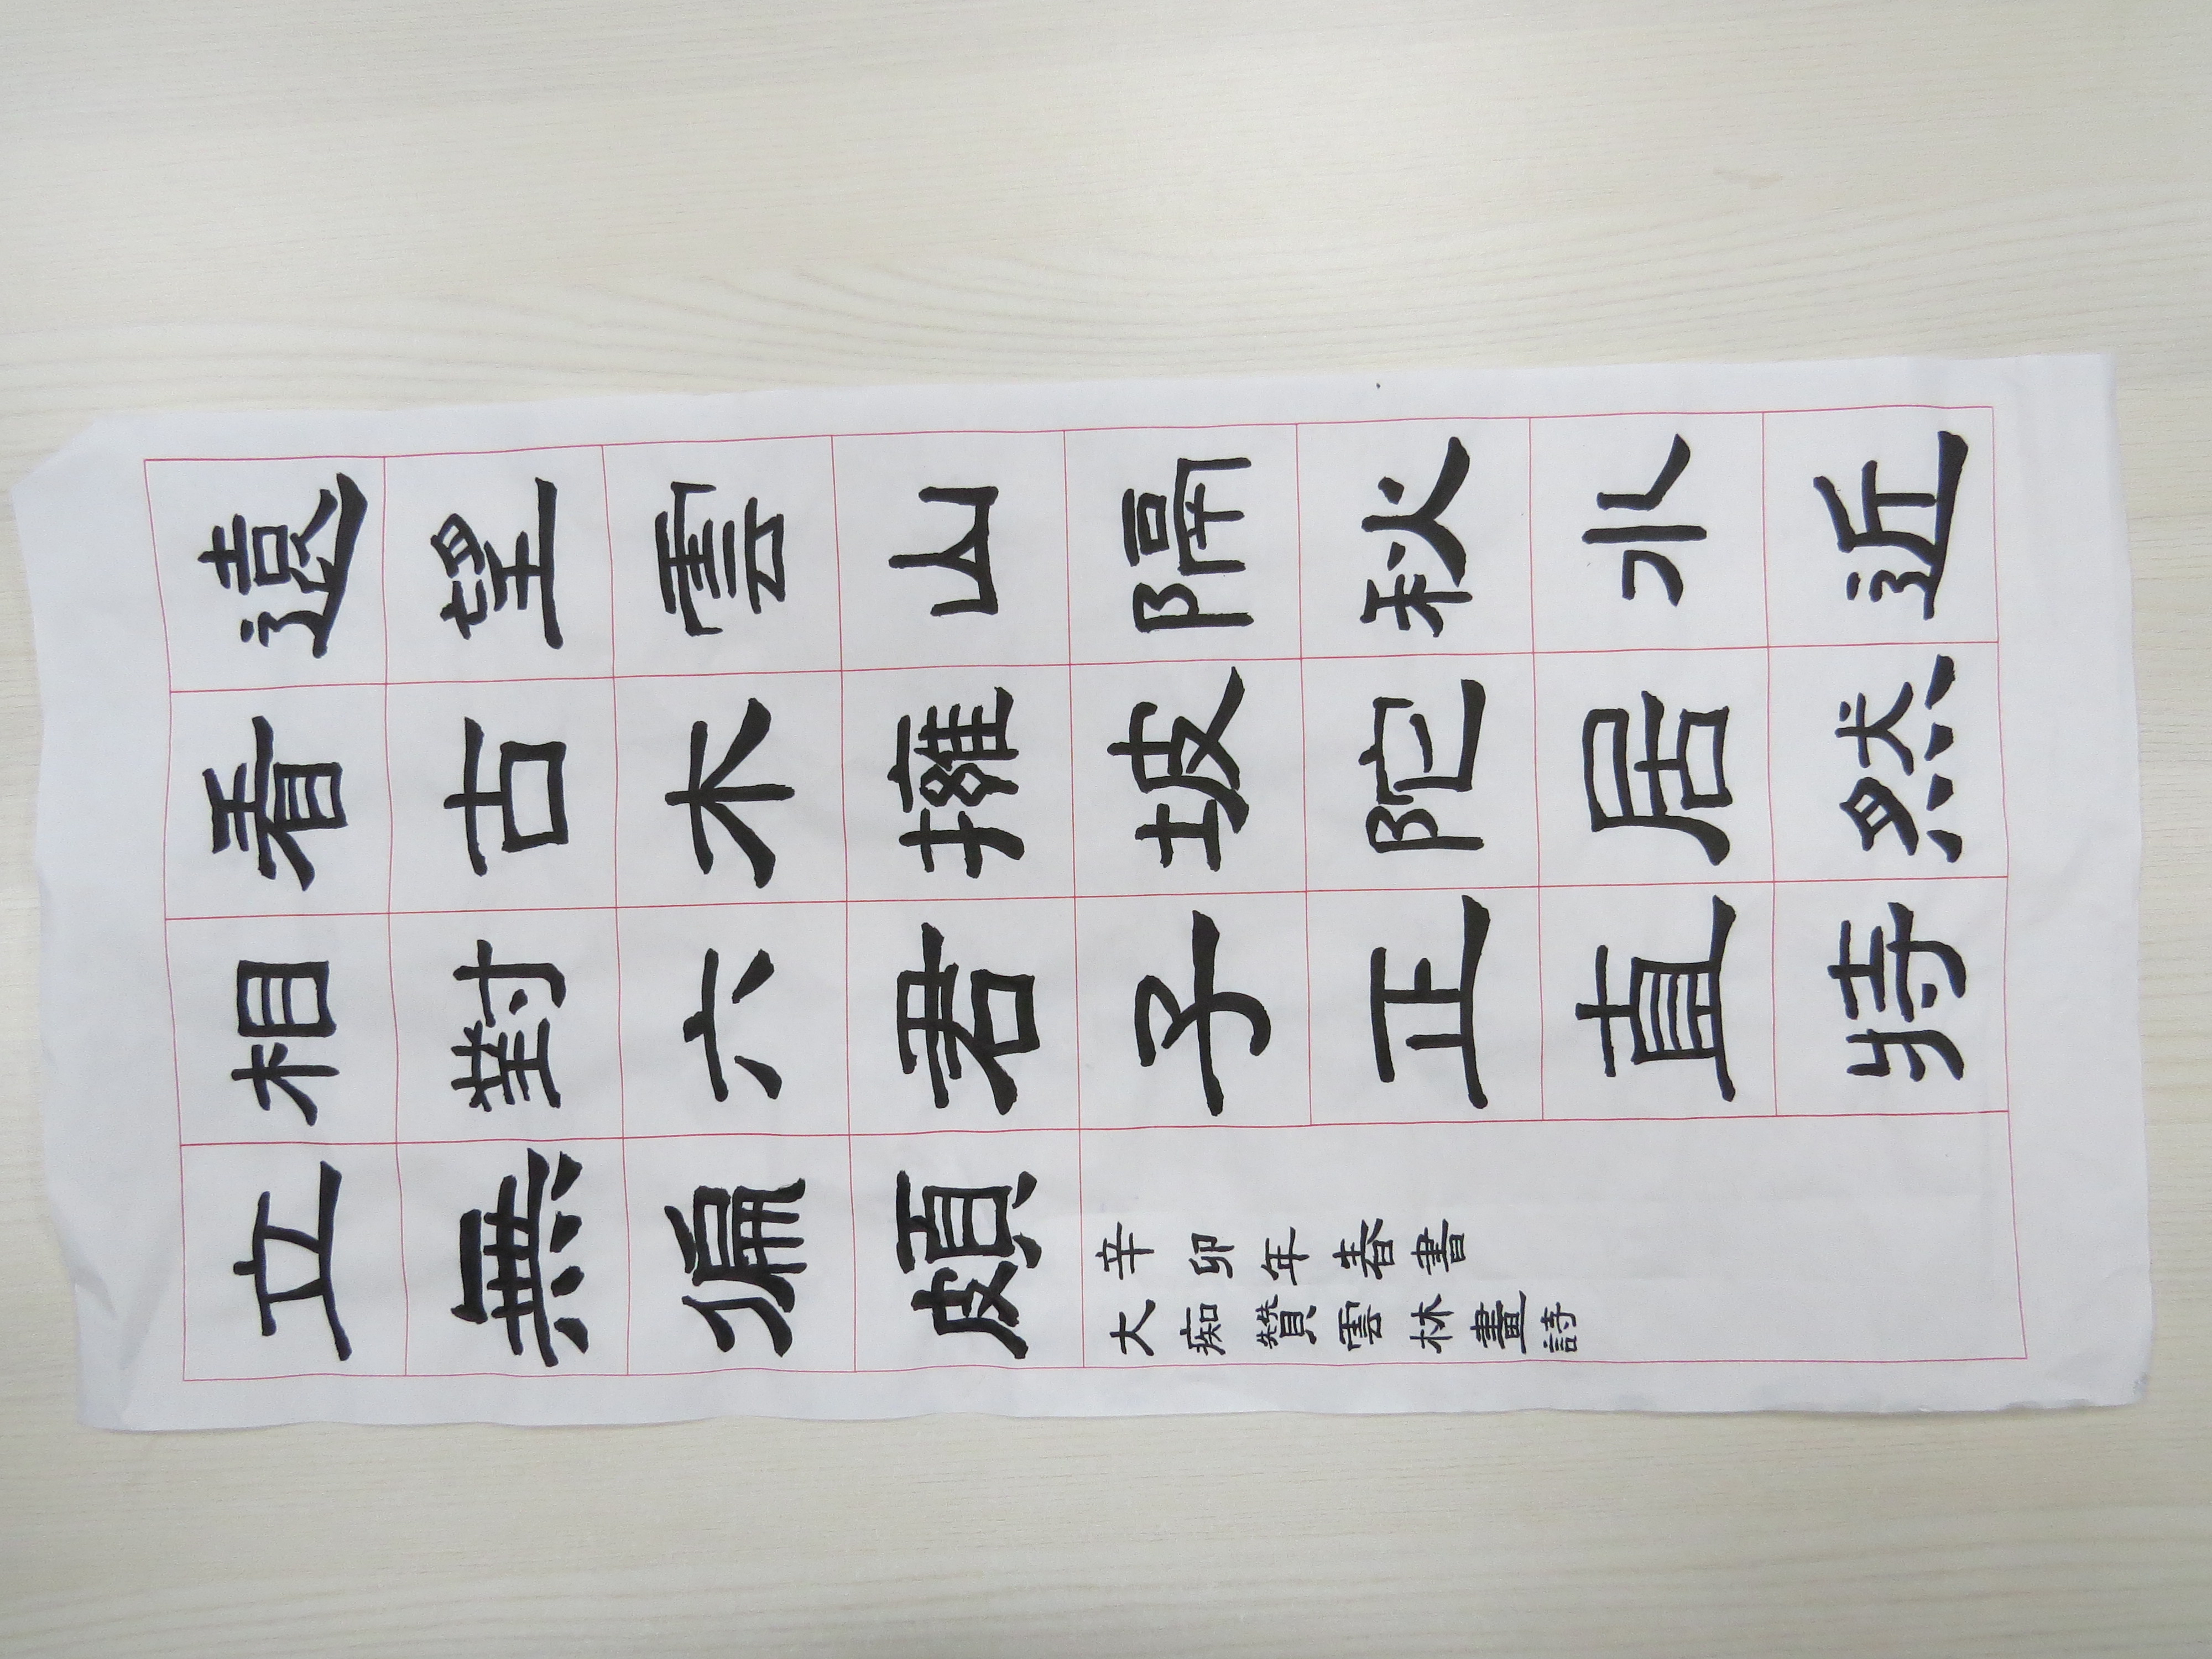 遠望雲山隔秋水近
看古木擁坡陀居然
相對六君子正直特
立無偏頗
辛卯年春書
大痴贊雲林畫詩